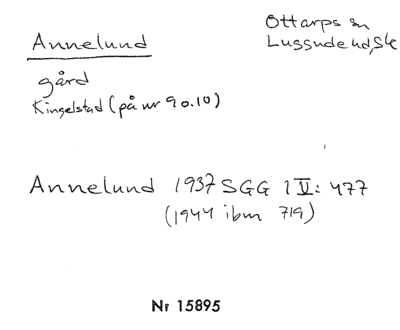 Annelund
Ottarps sn
Luggude hd, Sk
gård
Kingelstad (på nr 9 o. 10)
Annelund 1937 SGG 1 V: 477
(1944 ibm 719)
Nr 15895